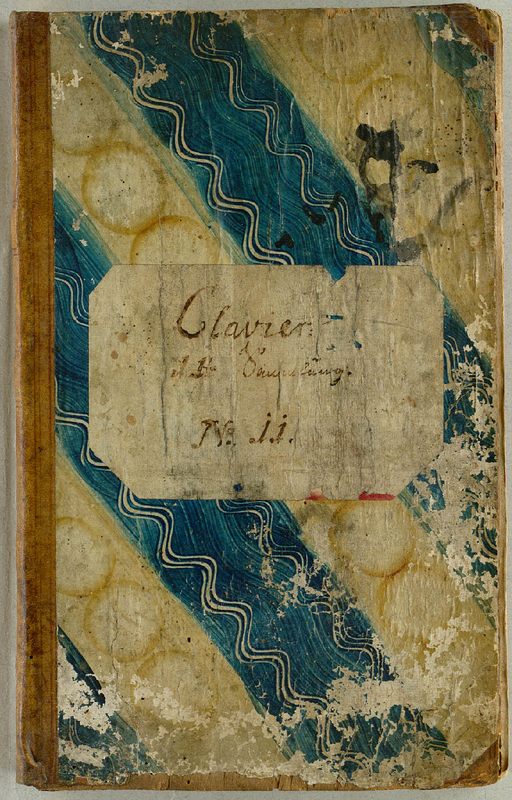 Clavier.
11te Sammlung.
No. 11.